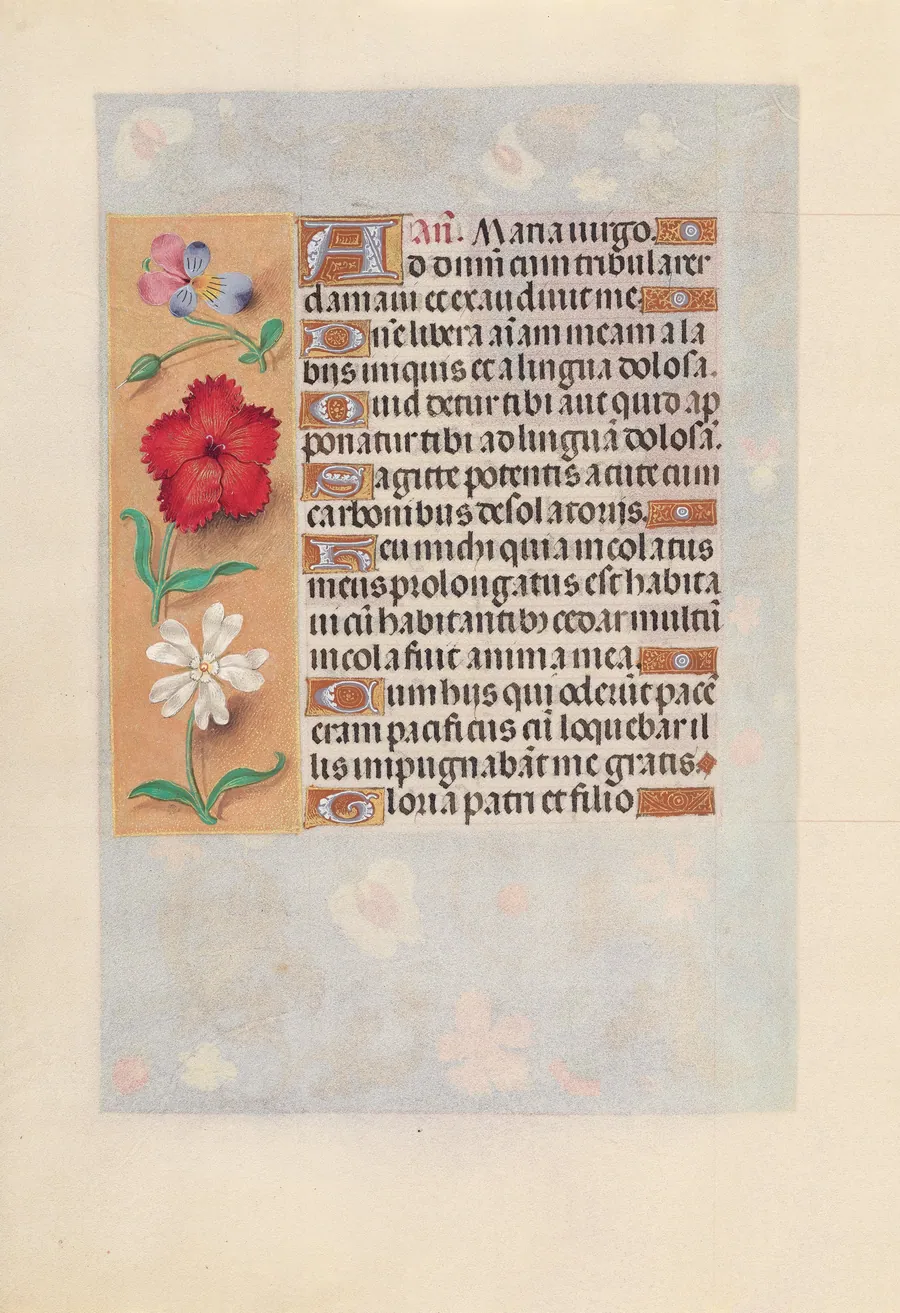 Añ. Maria uirgo.
Ad dominū cum tribularer
clamaui et exaudiuit me.
Dñe libera aīam meam a la
bijs iniquis et a lingua dolosa.
Quid detur tibi aut quid ap
ponatur tibi ad linguā dolosā.
Sagitte potentis acute cum
carbonibus desolatorijs.
Heu michi quia incolatus
meus prolongatus est habita
ui cū habitantibꝫ cedar multū
incola fuit anima mea.
Cum hijs qui oderūt pacē
eram pacificus cū loquebar il
lis impugnabāt me gratis.
Gloria patri et filio